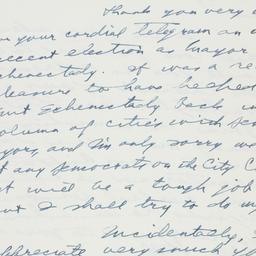 Thank you very
your cordial telegram on
recent election as Mayor
Schenectady. It was a re
pleasure to have helped
Schenectady back in
column of cities with
yors, and I'm only sorry we
any Democrats on the City C
it will be a tough job
but I shall try to do my
Incidentally,
appreciate very much